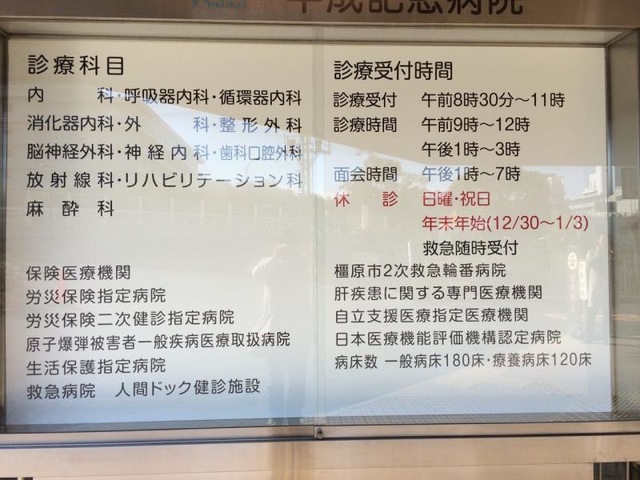 平成記念病院
診療科目
内　科・呼吸器内科・循環器内科
消化器内科・外　科・整形外科
脳神経外科・神経内科・歯科口腔外科
放射線科・リハビリテーション科
麻酔科
保険医療機関
労災保険指定病院
労災保険二次健診指定病院
原子爆弾被害者一般疾病医療取扱病院
生活保護指定病院
救急病院　人間ドック健診施設
診療受付時間
診療受付　午前8時30分～11時
診療時間　午前9時～12時
午後1時～3時
面会時間　午後1時～7時
休　診　日曜・祝日
年末年始(12/30～1/3)
救急随時受付
橿原市2次救急輪番病院
肝疾患に関する専門医療機関
自立支援医療指定医療機関
日本医療機能評価機構認定病院
病床数 一般病床180床・療養病床120床